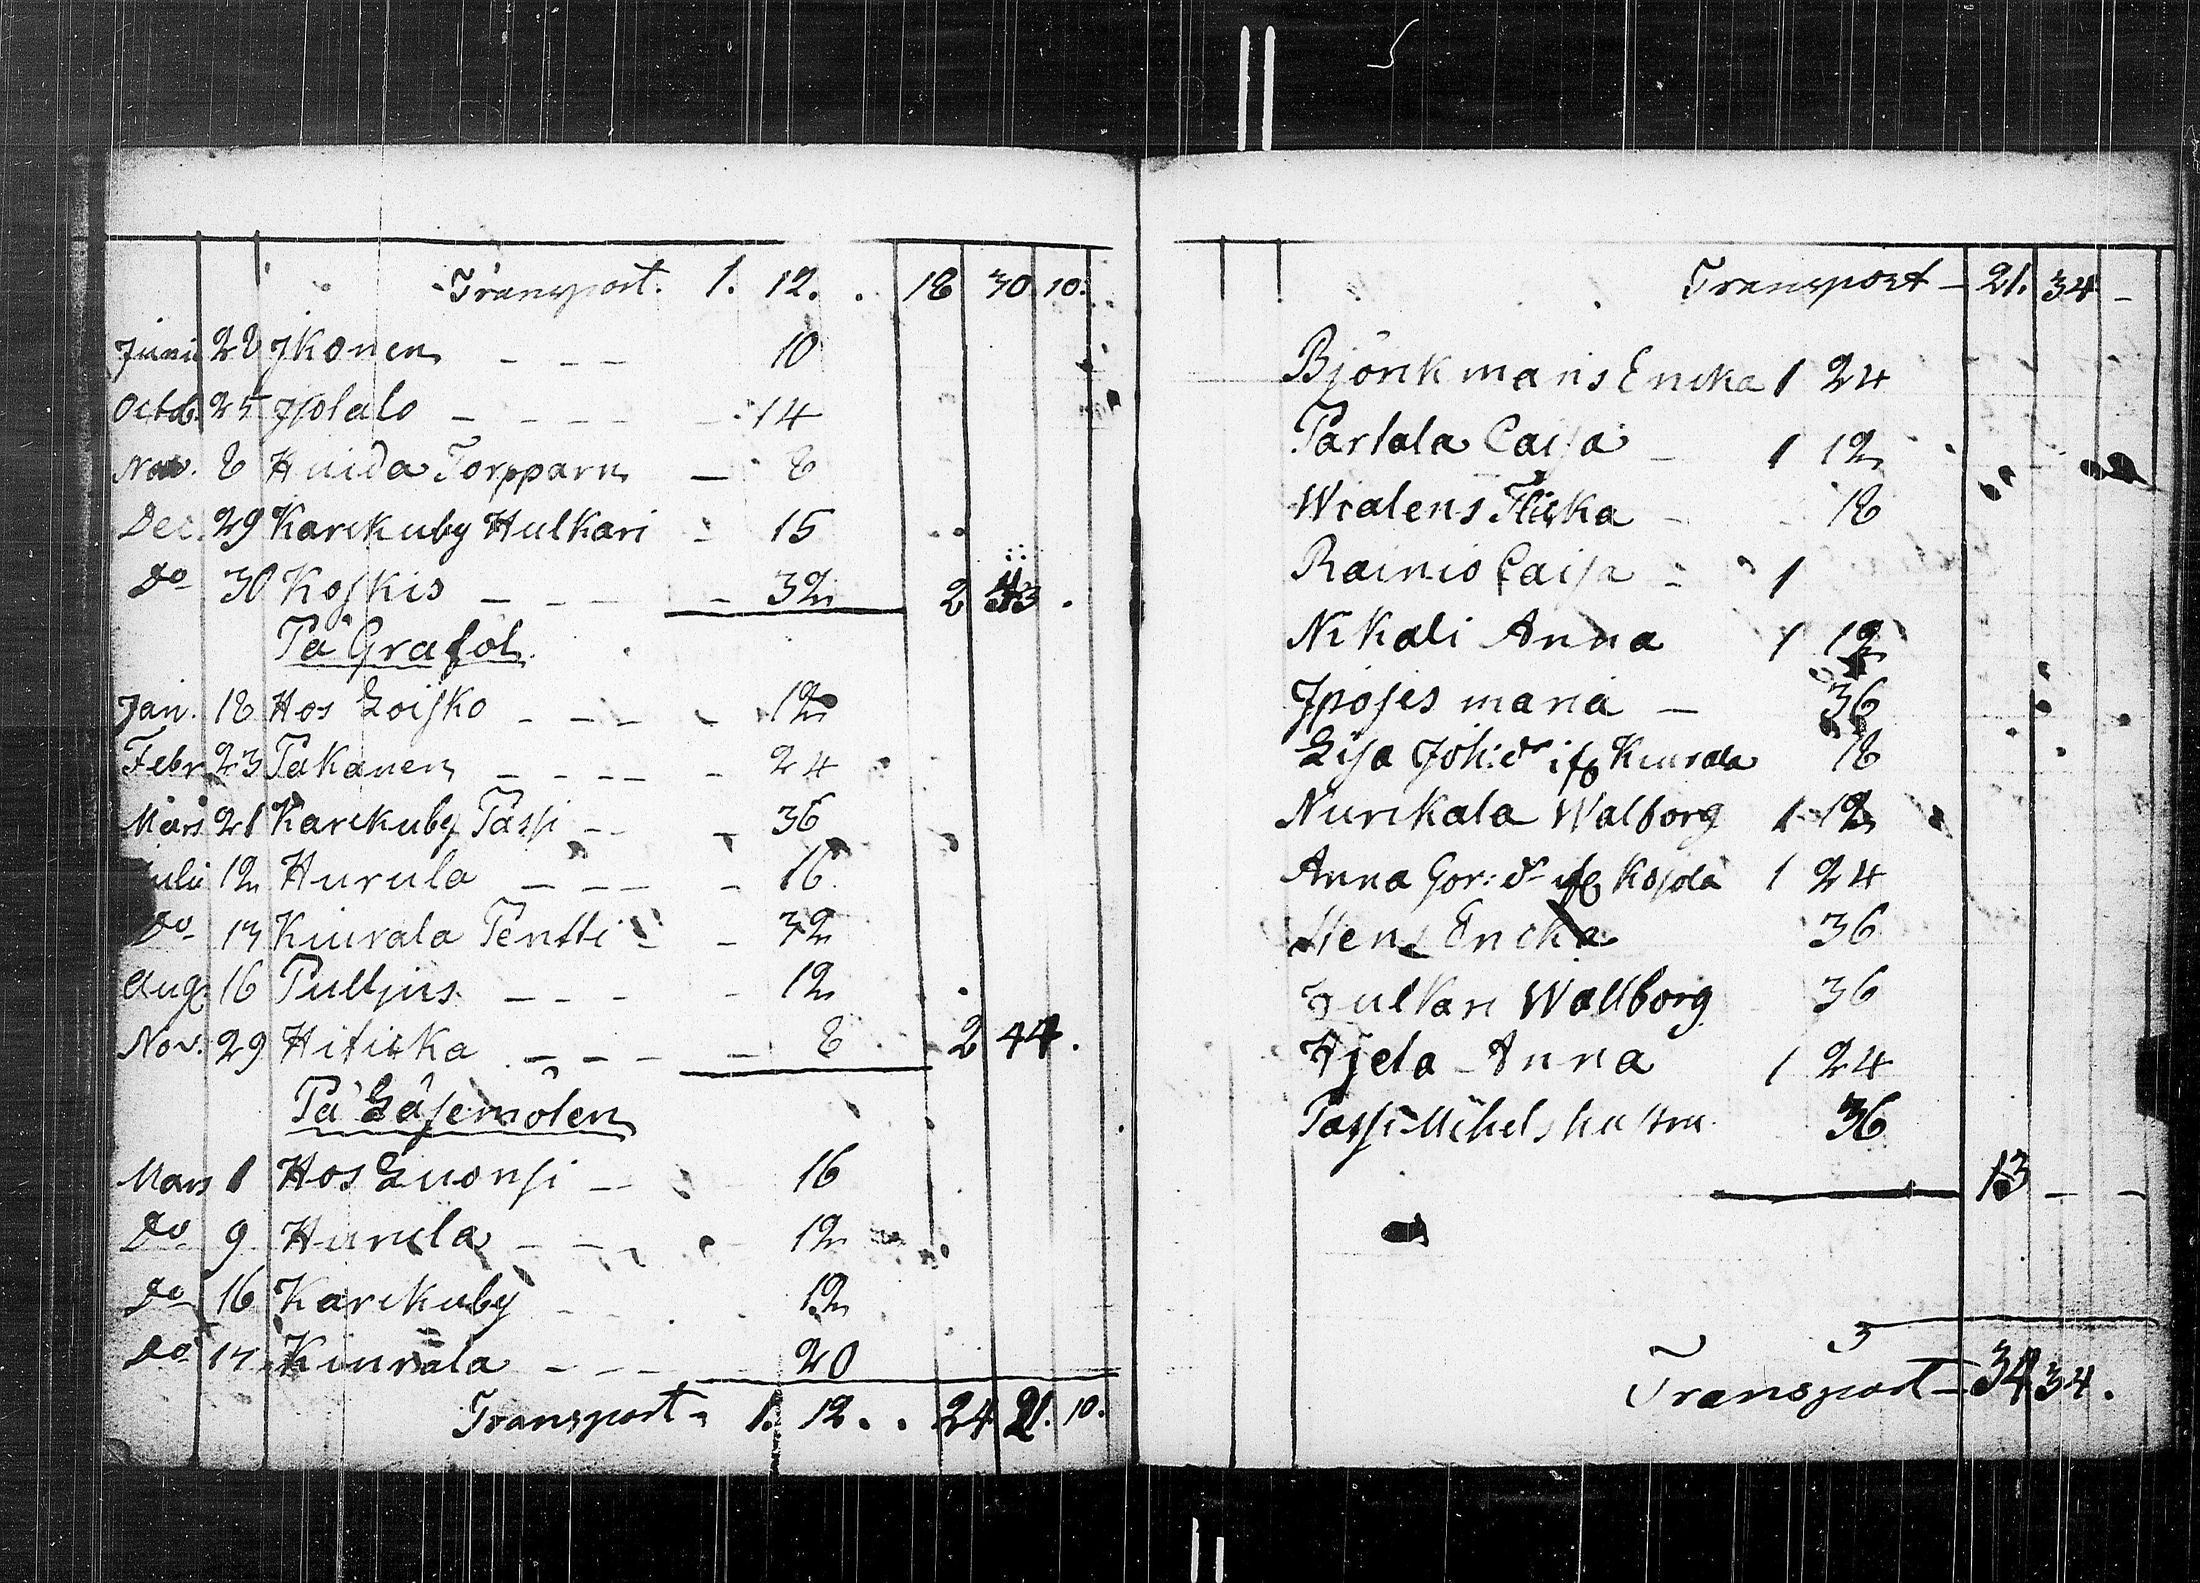 Transport. 1. 12. . 18 30 10.
Junii 28 Jkonen - - - 10
Octob. 25 Isotalo - - - - - 14
Nov. 8 Huida Torpparn - 8
Dec. 29 Karckuby Hulkari - 15
Do 30 Koskis - - - - 32 2 43.
På Graföl.
Jan. 18 Hos Loisko - - - - 12
Febr. 23 Pakanen - - - - - 24
Mars 21 Karckuby Passi - - - 36
Julii 12 Hurula - - - - 16
Do 13 Kiurala Pentti - - 32
Aug. 16 Pultjus - - - - 12
Nov. 29 Hitiska - - - - 8 2 44.
På Läsemöten
Mars 1 Hos Luonsi - - 16
Do 9 Hurula - - - 12
Do 16 Karckuby - - 12
Do 17 Kiurala - - - 20
Transport - 1. 12. . 24 21. 10.
Transport - 21. 34 -
Björkmans Ericka 1 24
Partala Caisa - 1 12
Wialens Flicka - 18
Rainio Caisa - 1
Nikali Anna 1 12
Maria - 36
Lisa Joh: dr ifr Kiurala 18
Nurckala Walborg 1 12
Anna Gor: dr ifr 1 24
Stens Ericka 36
Julkari Wallborg 36
Hjela Anna 1 24
Passi Michels hustru 36
13 - -
Transport - 34 34.